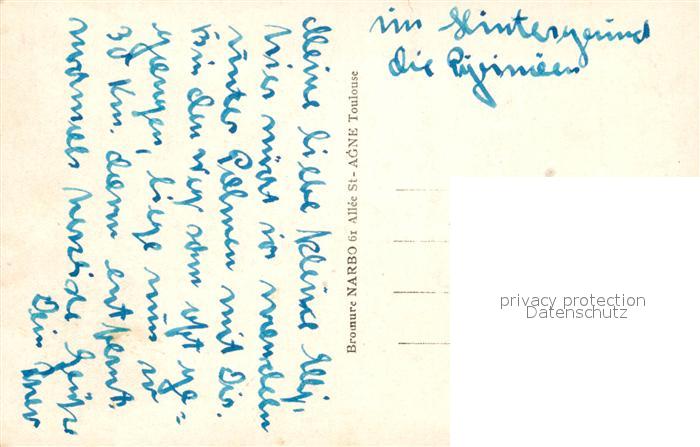 im Hintergrund
die Pyrinäen
Meine liebe kleine Elly,
hier möcht ich wandeln
unter Palmen mit Dir.
Bin den weg schon oft ge=
gangen, liege nun
30 Km. davon entfernt.
nochmals herzliche Grüße
Dein
Bromure NARBO 61 Allée St-AGNE Toulouse
privacy protection
Datenschutz